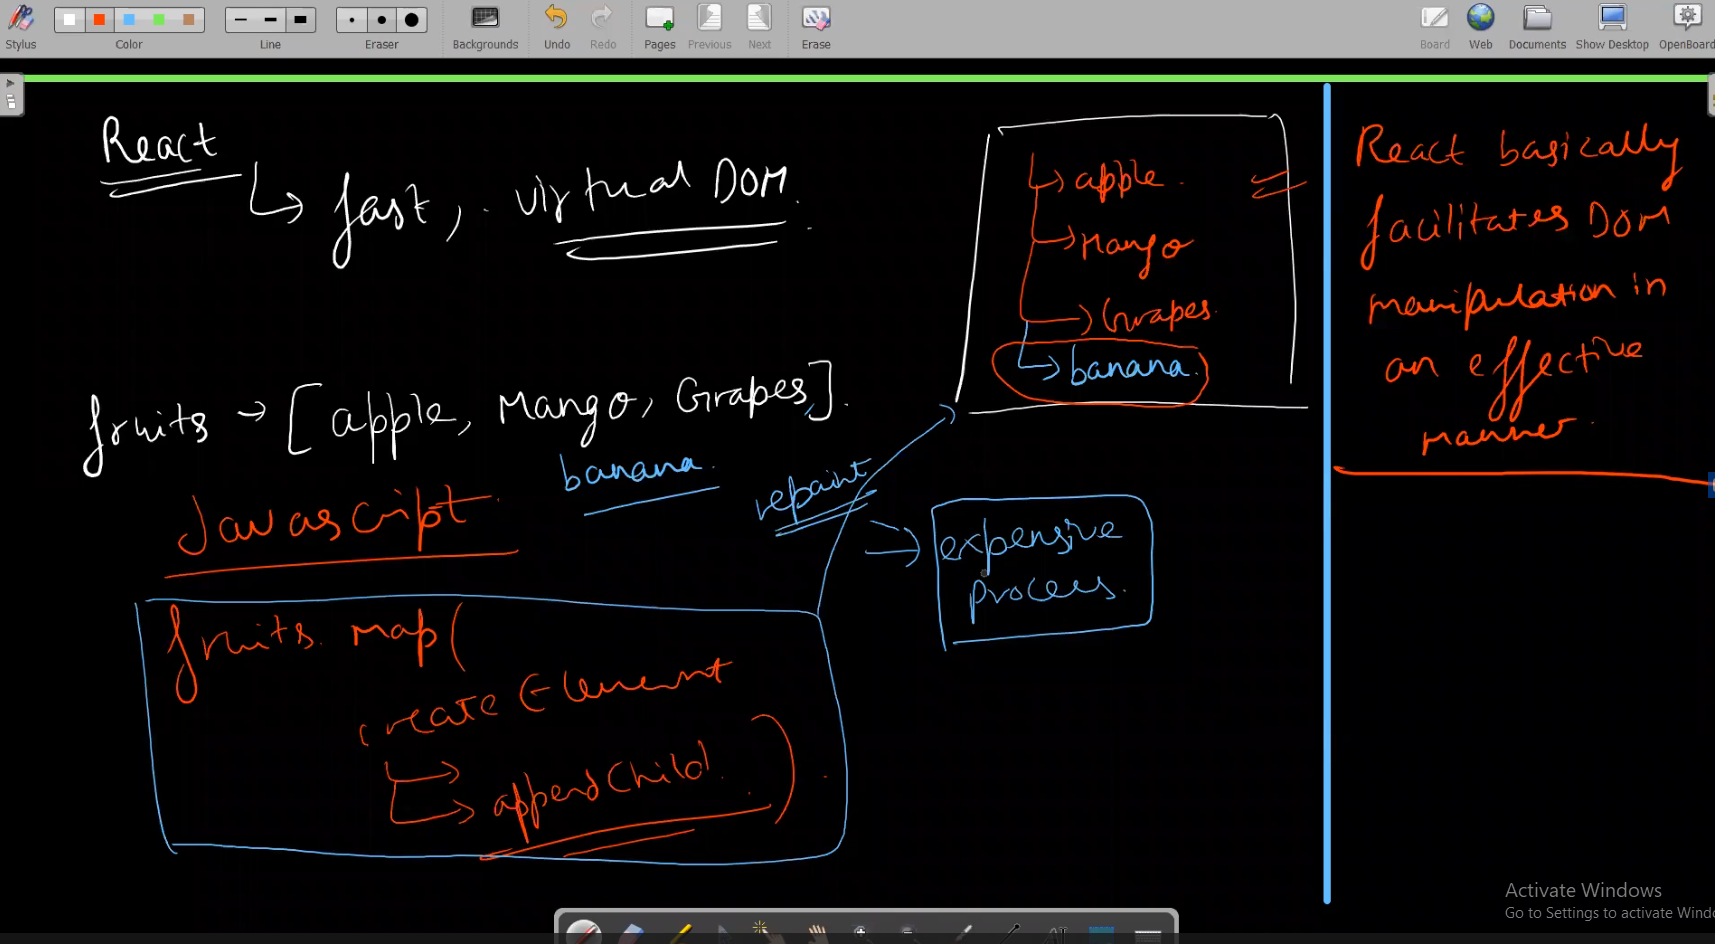 Stylus
Color
Line
Eraser
Backgrounds
Undo
Redo
Pages
Previous
Next
Erase
Board
Web
Documents
Show Desktop
OpenBoard
React
fast, virtual DOM.
fruits → [apple, Mango, Grapes].
banana.
Javascript
fruits. map(
create Element
appendChild. )
repaint
expensive
process.
apple.
Mango
Grapes.
banana.
React basically
facilitates DOM
manipulation in
an effective
manner.
Activate Windows
Go to Settings to activate Windo